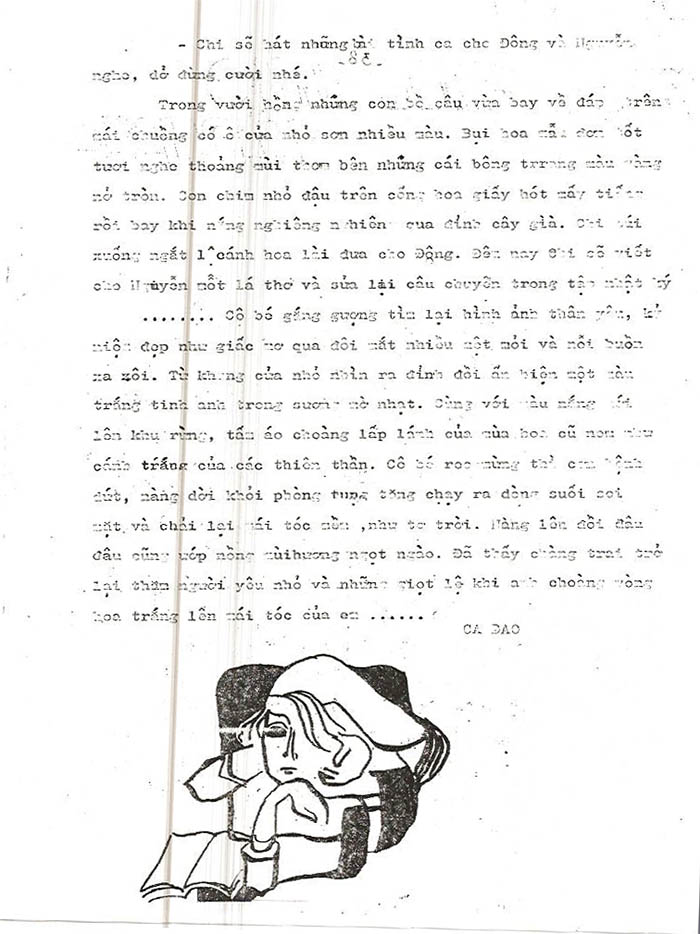 - Chi sẽ hát những bài tình ca cho Đông và Nguyễn
nghe, dở đừng cười nhé.
Trong vười hồng những con bồ câu vừa bay về đáp trên
mái chuồng có ô cửa nhỏ sơn nhiều màu. Bụi hoa mẫu đơn tốt
tươi nghe thoảng mùi thơm bên những cái bông trrang màu vàng
nở tròn. Con chim nhỏ đậu trên cổng hoa giấy hót mấy tiếng
rồi bay khi nắng nghiêng nghiêng qua đỉnh cây già. Chi cúi
xuống ngắt cánh hoa lài đưa cho Đông. Đêm nay Chi sẽ viết
cho Nguyễn một lá thơ và sửa lại câu chuyện trong tập nhật ký
........ Cô bé gắng gượng tìm lại hình ảnh thân yêu, kỷ
niệm đẹp như giấc mơ qua đôi mắt nhiều mệt mỏi và nỗi buồn
xa xôi. Từ khung cửa nhỏ nhìn ra đỉnh đồi ẩn hiện một màu
trắng tinh anh trong sương mờ nhạt. Cùng với màu nắng
lên khu rừng, tấm áo choàng lấp lánh của mùa hoa cũ như
cánh trắng của các thiên thần. Cô bé reo mừng thể cơn bệnh
dứt, nàng dời khỏi phòng tung tăng chạy ra dòng suối soi
mặt và chải lại mái tóc mềm ,như tơ trời. Nàng lên đồi đâu
đâu cũng ướp nồng mùihương ngọt ngào. Đã thấy chàng trai trở
lại thăm người yêu nhỏ và những giọt lệ khi anh choàng vòng
hoa trắng lên mái tóc của em ......
CA DAO